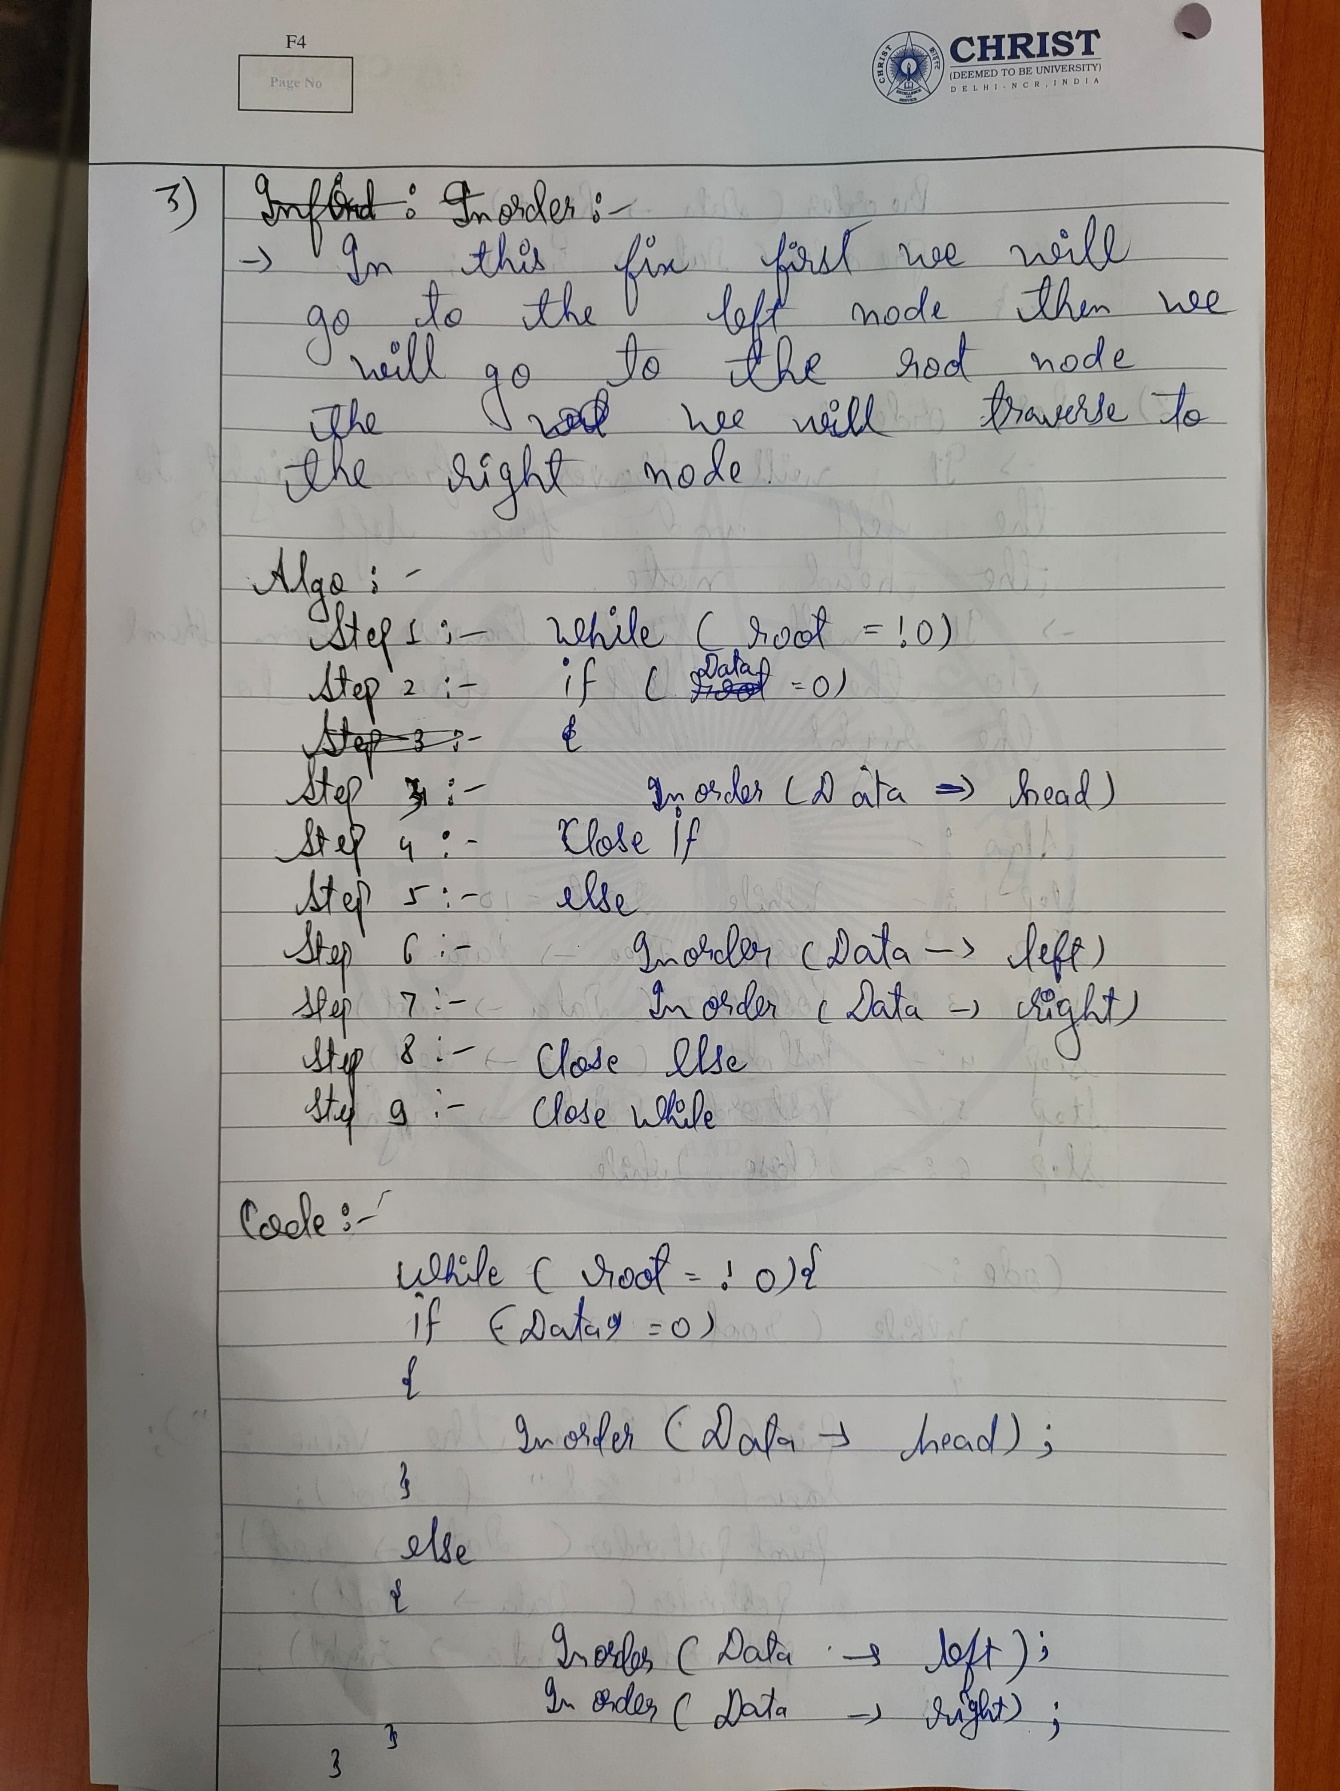 F4
Page No
CHRIST
(DEEMED TO BE UNIVERSITY)
DELHI-NCR, INDIA
3) Inorder :-
-> In this fix first we will
go to the left node then we
will go to the rod node
the we will traverse to
the right node.
Algo :-
Step 1 :- while ( root = !0)
Step 2 :- if ( Data = 0)
Step 3 :- {
Step 3 :- Inorder (Data => head)
Step 4 :- Close if
Step 5 :- else
Step 6 :- Inorder (Data -> left)
Step 7 :- Inorder (Data -> right)
Step 8 :- Close else
Step 9 :- Close while
Code :-
while ( root = ! 0){
if (Data = 0)
{
Inorder (Data -> head) ;
}
else
{
Inorder ( Data -> left) ;
Inorder ( Data -> right) ;
}
}